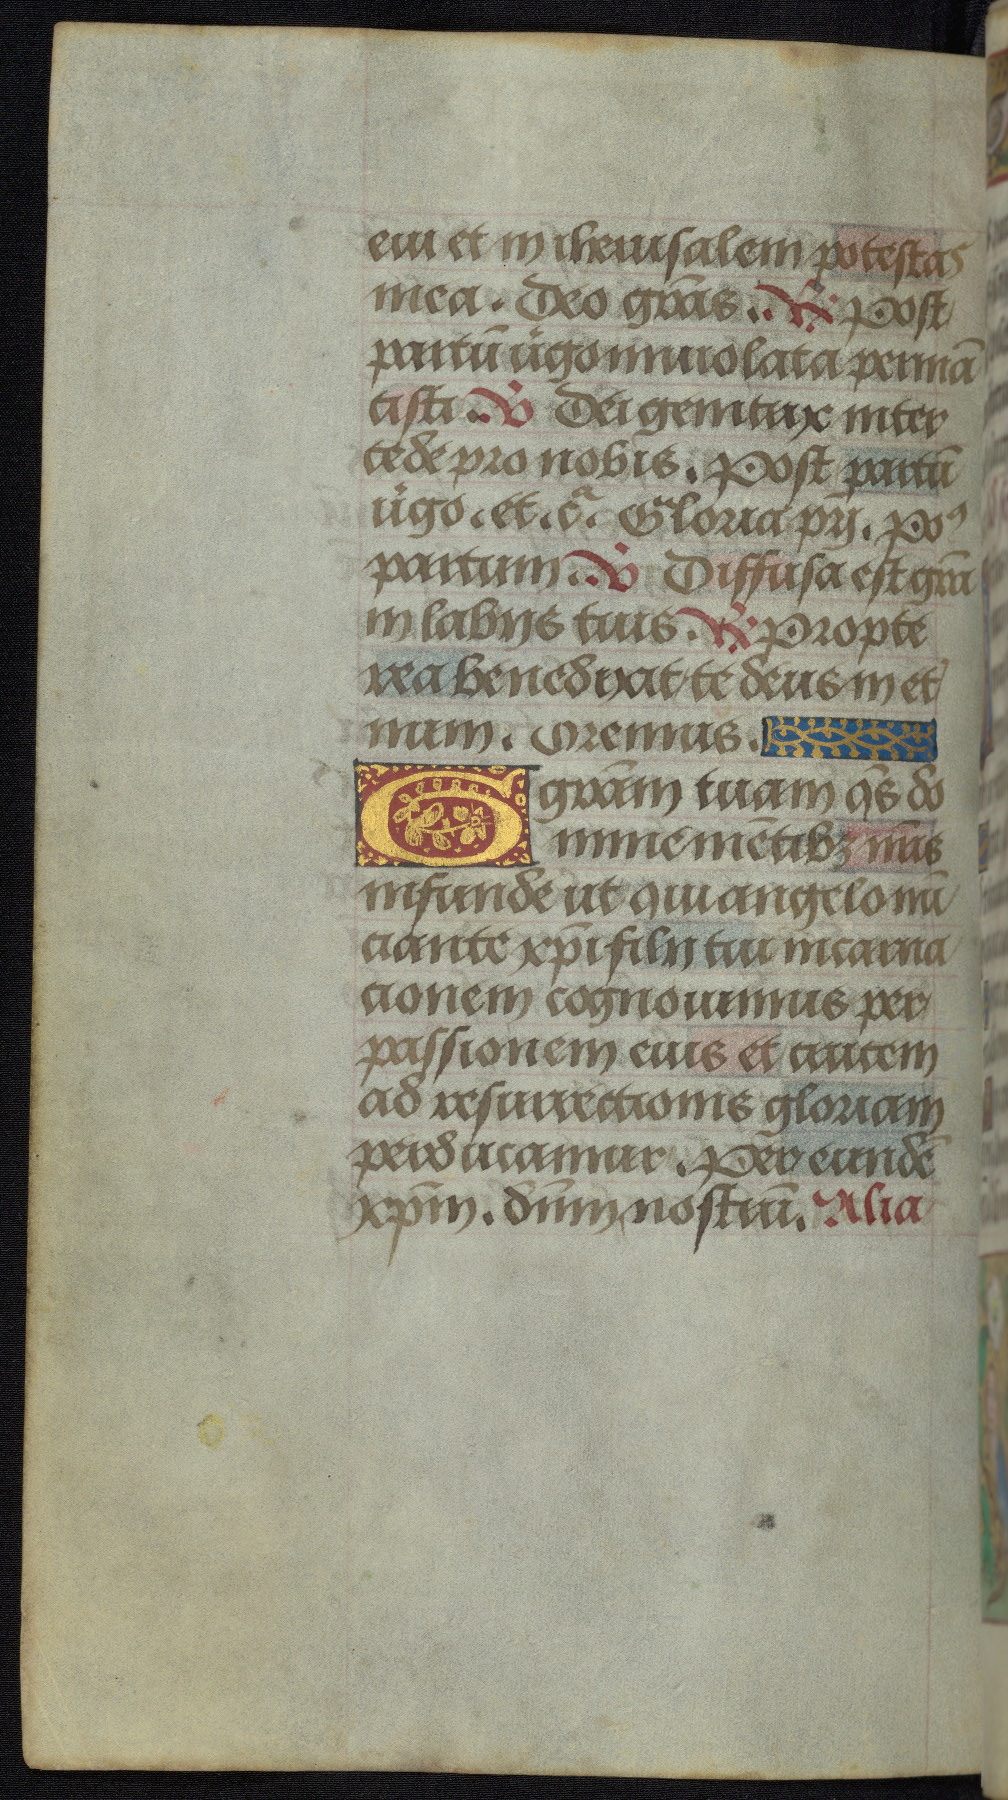 eui et in iherusalem potestas
mea. Deo grãs. ℟ Post
partũ ůgo inuiolata permã
sisti. ℣ Dei genitrix inter
cede pro nobis. Post partũ
ůgo. et. cͣ. Gloria pr̃i. Poꝰ
partum. ℣ Diffusa est grã
in labijs tuis. ℟ Propte
rea benedixit te deus in et̾
num. Oremus.
Gr̃am tuam q̃s do
mine mẽtibꝫ nr̃is
infunde ut qui angelo nũ
ciante xp̃i filij tui incarna
cionem cognouimus per
passionem eius et crucem
ad resurrectionis gloriam
perducamur. Per eundẽ
xp̃m. dñm nostrũ. Alia